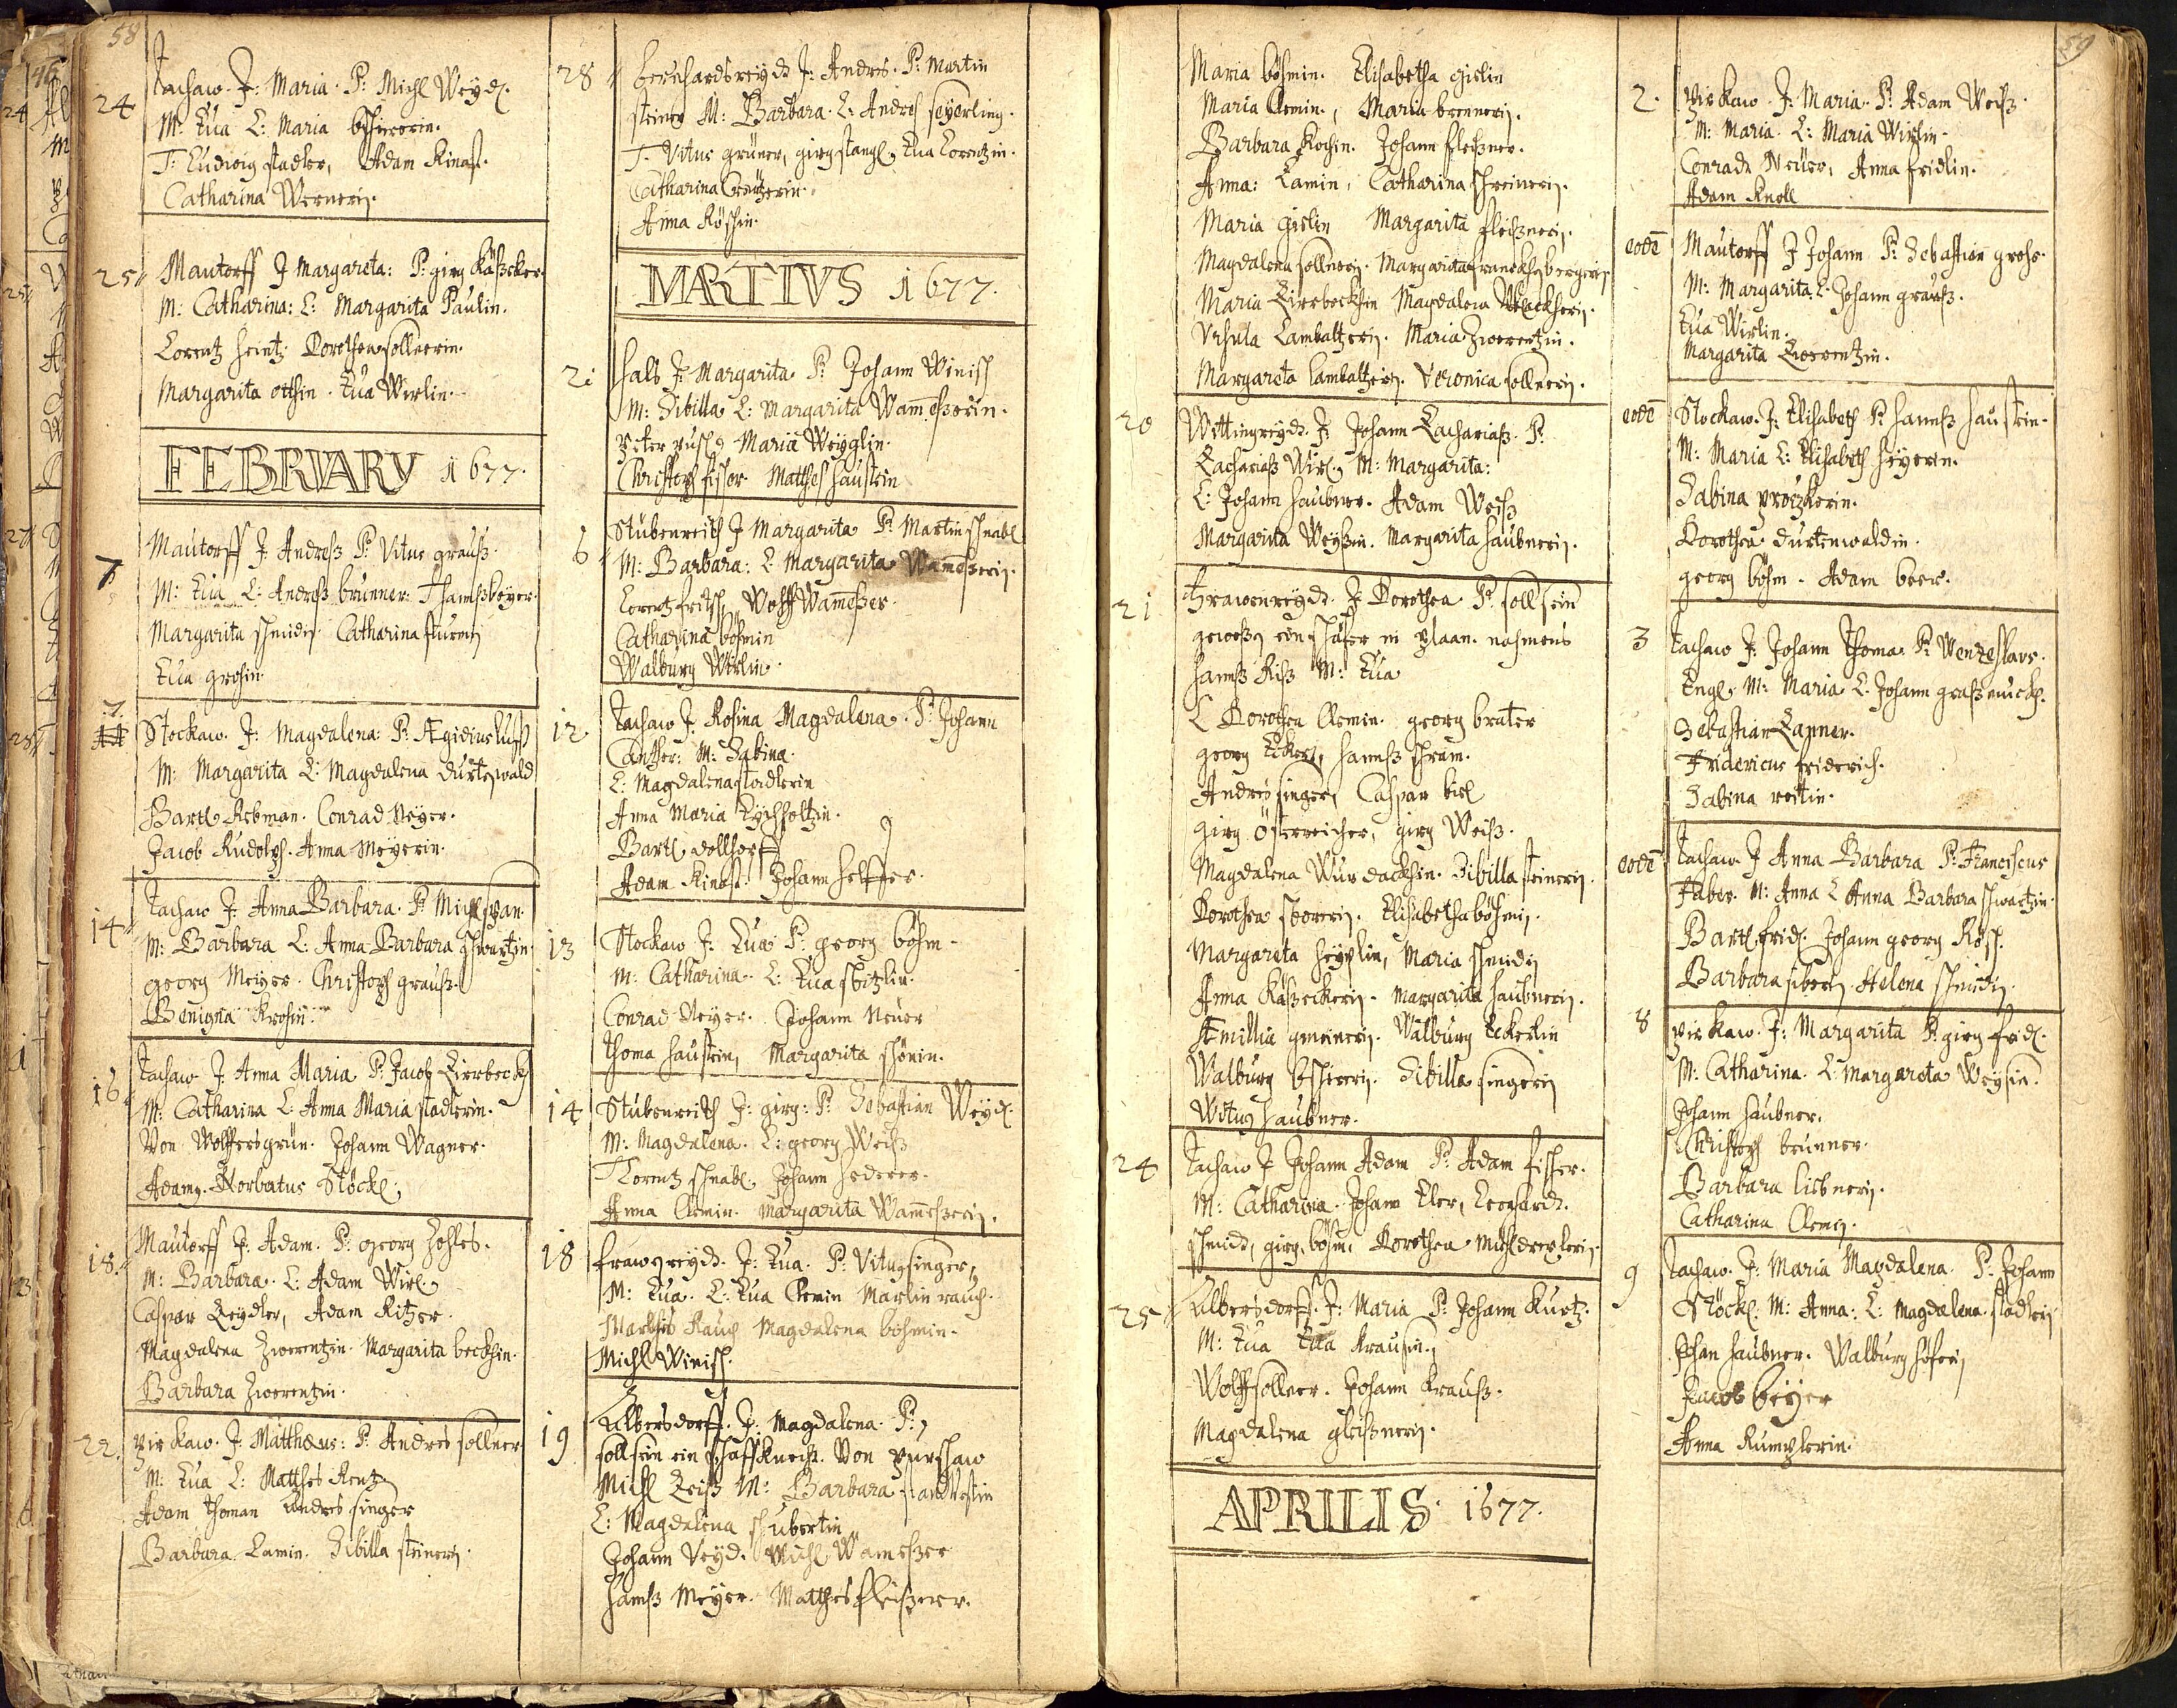 58
24
Tachaw. J: Maria. P: Michl Weydl.
M: Eua L: Maria
T: Ludwig stadler, Adam Kinast.
Catharina Wernerin.
25
Mautorff J Margareta: P: girg Käßeker
M: Catharina: L: Margarita Paulin.
Lorentz heintz Dorothea sollnerin.
Margarita otthin. Eua Wirlin.
FEBRVARY 1677.
7
Mautorff J Andreß P: Vitus grauß.
M: Eua L: Andreß brunner: T hanß beyer.
Margarita schmidin Catharina sturmin
Eua grosin.
7.
Stockaw. J: Magdalena: P: Ægidius
M: Margarita L: Magdalena durtenwald
Bartl Rebman. Conrad Neyer.
Jacob Rudolph. Anna Meyerin.
14
Tachaw J: Anna Barbara. P: Michl span.
M: Barbara L: Anna Barbara schwartzin
georg Meyer. Christoph grauß.
Benigna Krosin.
16
Tachaw J. Anna Maria P: Jacob Zirrbeckh
M: Catharina L: Anna Maria stadlerin.
Von Wolffersgrün. Johann Wagner.
Adamg. Norbertus Stöckl.
18.
Mautorff J. Adam. P: georg Zohles.
M: Barbara. L: Adam Wirl.
Caspar Zeydler, Adam Ritzer.
Magdalena Zwerentzin. Margarita beckhin.
Barbara Zwerentzin.
22.
pirkaw. J: Matthæus: P: Andres sollner
M: Eua L: Matthes Rentz.
Adam thoman Andres singer
Barbara Lamin. Sibilla steinerin.
28
bernhardsreydt J: Andres. P: Martin
steiner M: Barbara. L: Andres seyerling.
T. Vitus grüner, girg stangl, Eua Lorentzin.
Catharina Creützerin.
Anna Röschin.
MARTIVS 1677.
2
hals J: Margarita P: Johann Winisch
M: Sibilla L: Margarita Wameßerin.
peter Maria Weyglin.
Christoph fischer Matthes haustein
6
Stubenreith J Margarita P: Martin schnabl
M: Barbara: L: Margarita Wameßerin.
Lorentz fritsch, Wolff Wameßer.
Catharina böhmin
Walburg Wirlin.
12
Tachaw J. Rosina Magdalena. P: Johann
Canther: M: Sabina.
L: Magdalena stadlerin
Anna Maria Eychholtzin.
Bartl dollhopff
Adam Kinast. Johann helffer.
13
Stockaw J: Eua P: georg böhm.
M: Catharina. L: Eua spitzlin.
Conrad Neyer. Johann Neüer
thoma haustein, Margarita schönin.
14
Stubenreith J: girg: P: Sebastian Weydl.
M: Magdalena. L: georg Weiß
T Lorentz schnabl, Johann hederer.
Anna Clemin. Margarita Wameßerin.
18
frawenreydt. J: Eua. P: Vitus singer,
M: Eua. L: Eua Clemin Martin rauch.
Matthes Rauch Magdalena böhmin.
Michl Winisch.
19
Albersdorff. J: Magdalena. P:
soll sein ein schaffknecht. Von purschaw
Michl Zeiß M: Barbara
L: Magdalena schubertin
Johann Veydl. Michl Wameßer
hanß Meyer. Matthes fleißner.
Maria böhmin. Elisabetha gislin
Maria Clemin, Maria brennerin.
Barbara Kochin. Johann fleißner.
Anna: Lamin, Catharina schreinerin.
Maria gislin Margarita fleißnerin.
Magdalena sollnerin. Margarita franckhenbergerin
Maria Zirrbeckhin Magdalena
Vrsula Lambaltzerin. Maria Zwerentzin.
Margareta Lambaltzerin. Veronica sollnerin.
20
Wittingreydt. J: Johann Zachariaß. P:
Zachariaß Wirl, M: Margarita:
L: Johann haubner. Adam Weiß
Margarita Weyßin. Margarita haubnerin.
21
frawenreydt. J: Dorothea P: soll sein
geweßen ein schäfer in plaan. nahmens
hanß Riß M: Eua
L Dorothea Clemin. georg brater
georg Eckert, hanß schram.
Andres singer, Caspar
girg Österreicher, girg Weiß.
Magdalena Wurdackhin. Sibilla steinerin.
Dorothea sporerin. Elisabetha böhmin.
Margareta heyplin, Maria schmidin
Anna Käßeckerin. Margarita haubnerin.
Æmillia gmeinerin. Walburg Eckertin
Walburg Sibilla singerin
Vitus haubner.
24
Tachaw J Johann Adam P: Adam fischer.
M: Catharina. Johann Eler, Leonhardt.
schmidt, girg böhm, Dorothea Michldrexlerin.
25
Albersdorff. J: Maria P: Johann Kurtz.
M: Eua Eua Krausin.
Wolff sollner. Johann Krauß.
Magdalena gleißnerin.
APRILIS. 1677.
59
2.
pirkaw. J: Maria. P: Adam Weiß.
M: Maria. L: Maria Wirlin.
Conradt Neüer, Anna fridlin.
Adam Knoll
eodē
Mautorff J Johann P: Sebastian grose.
M: Margarita. L: Johann grauß.
Eua Wirlin.
Margarita Zwerentzin.
eodē
Stockaw. J: Elisabeth P: hannß haustein.
M: Maria L: Elisabeth heyerin.
Sabina
Dorothea durtenwaldin.
georg böhm. Adam beer.
3
Tachaw J. Johann Thoma. P: Wenzeslaus.
Engl. M: Maria L. Johann graßmuckh.
Sebastian Zanner.
Fridericus friderich.
Sabina reitin.
eodē
Tachaw J Anna Barbara P: Franciscus
Faber. M: Anna L Anna Barbara schwartzin.
Bartl fridl. Johann georg Rösch.
Barbara Helena schmidin.
8
pirkaw. J: Margarita P: girg fridl.
M: Catharina. L: Margareta Weysin.
Johann haubner.
Christoph brunner.
Barbara liebnerin.
Catharina Clemin.
9
Tachaw. J: Maria Magdalena. P: Johann
Stöckl. M: Anna: L: Magdalena stadlerin
Johan haubner. Walburg höferin
Jacob beyer
Anna Rumplerin.